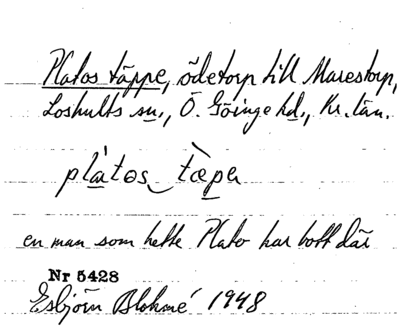 Platos täppe, ödetorp till Marestorp,
Loshults sn., Ö. Göinge hd., Kr. län.
plàtos tæpə
en man som hette Plato har bott där
Nr 5428
Esbjörn Blohmé 1948